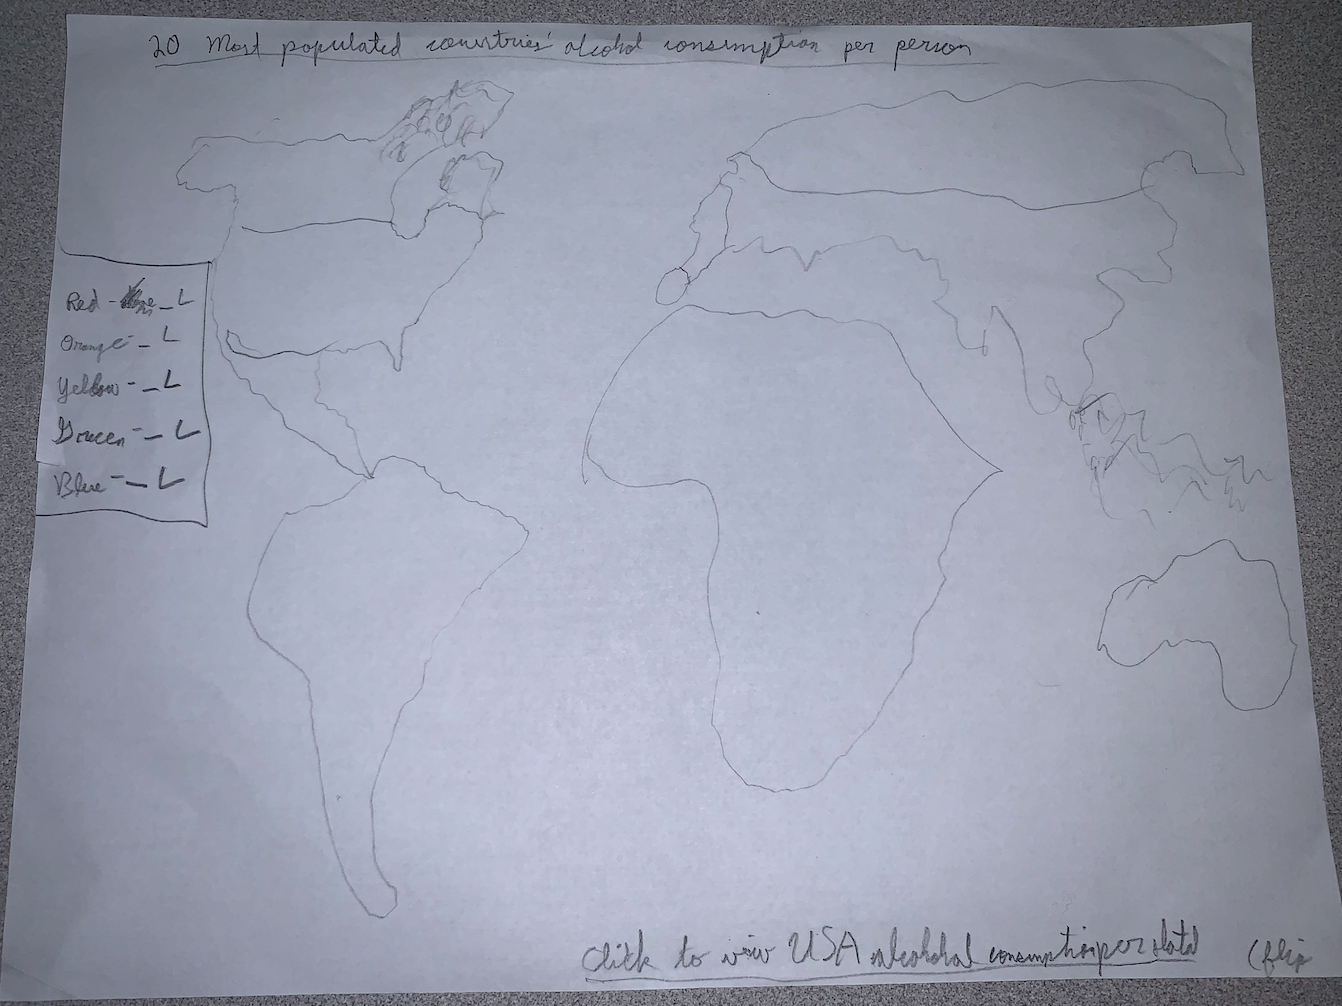 20 Most populated countries' alcohol consumption per person
Red - _ L
Orange - _ L
Yellow - _ L
Green - _ L
Blue - _ L
Click to view USA alcohohol consumption per state (flip